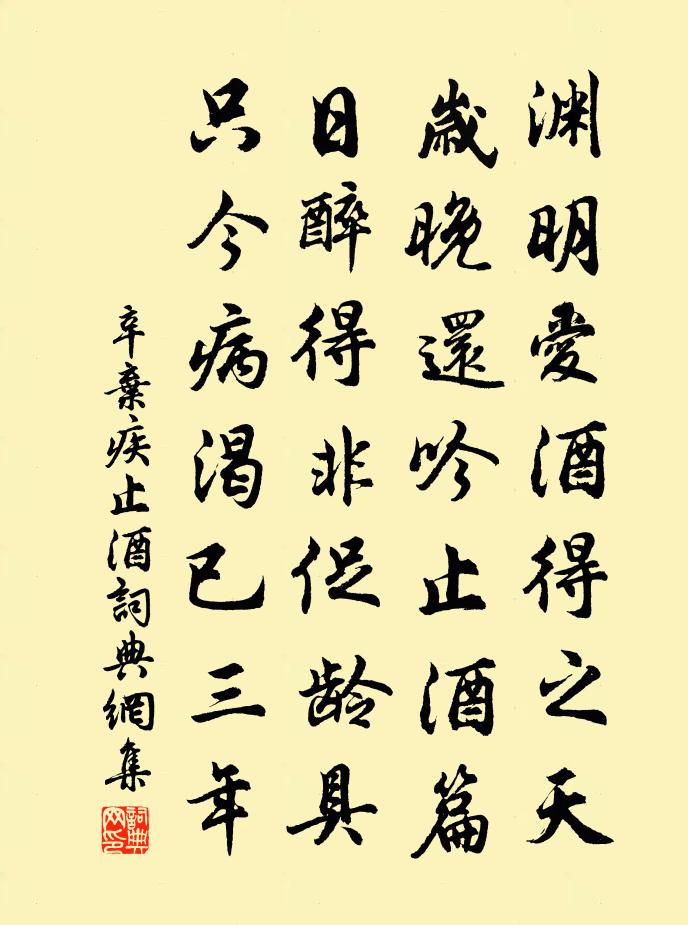 渊明愛酒得之天
歲晚還吟止酒篇
日醉得非促龄具
只今病渴已三年
辛棄疾止酒詞典網集
詞典
网印